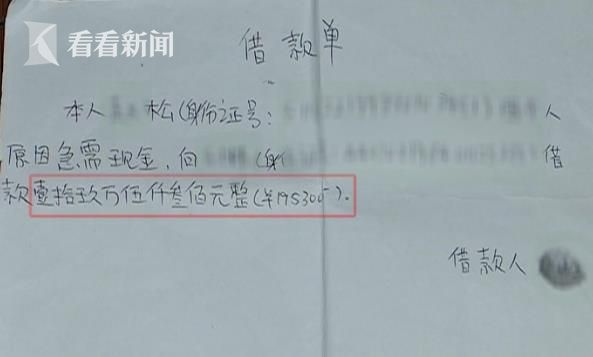 看看新闻
借款单
本人 松(身份证号: 人
原因急需现金,向 (身 借
款壹拾玖万伍仟叁佰元整(¥195300).
借款人